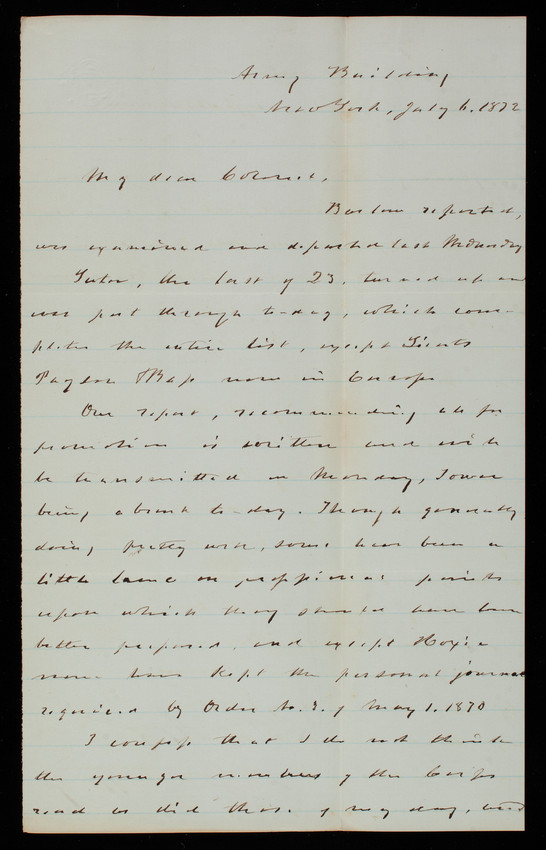 Army Building
New York, July 6. 1872
My dear Colonel,
Barlow reported,
was examined and departed last Wednesday
the last of 23, turned up and
was put through to-day, which com-
pletes the entire list, except Lieuts
Payson & Bass now in Europe
Our report, recommending all for
promotion is written and will
be transmitted on Monday, Tower
being absent to-day. Though generally
doing pretty well, some have been a
little lame on professional points
upon which they should have been
better prepared, and except Hoxie
none have kept the personal journal
required by Order No. 3. of May 1. 1870
I confess that I do not think
the younger members of the Corps
read as did those of my day, and